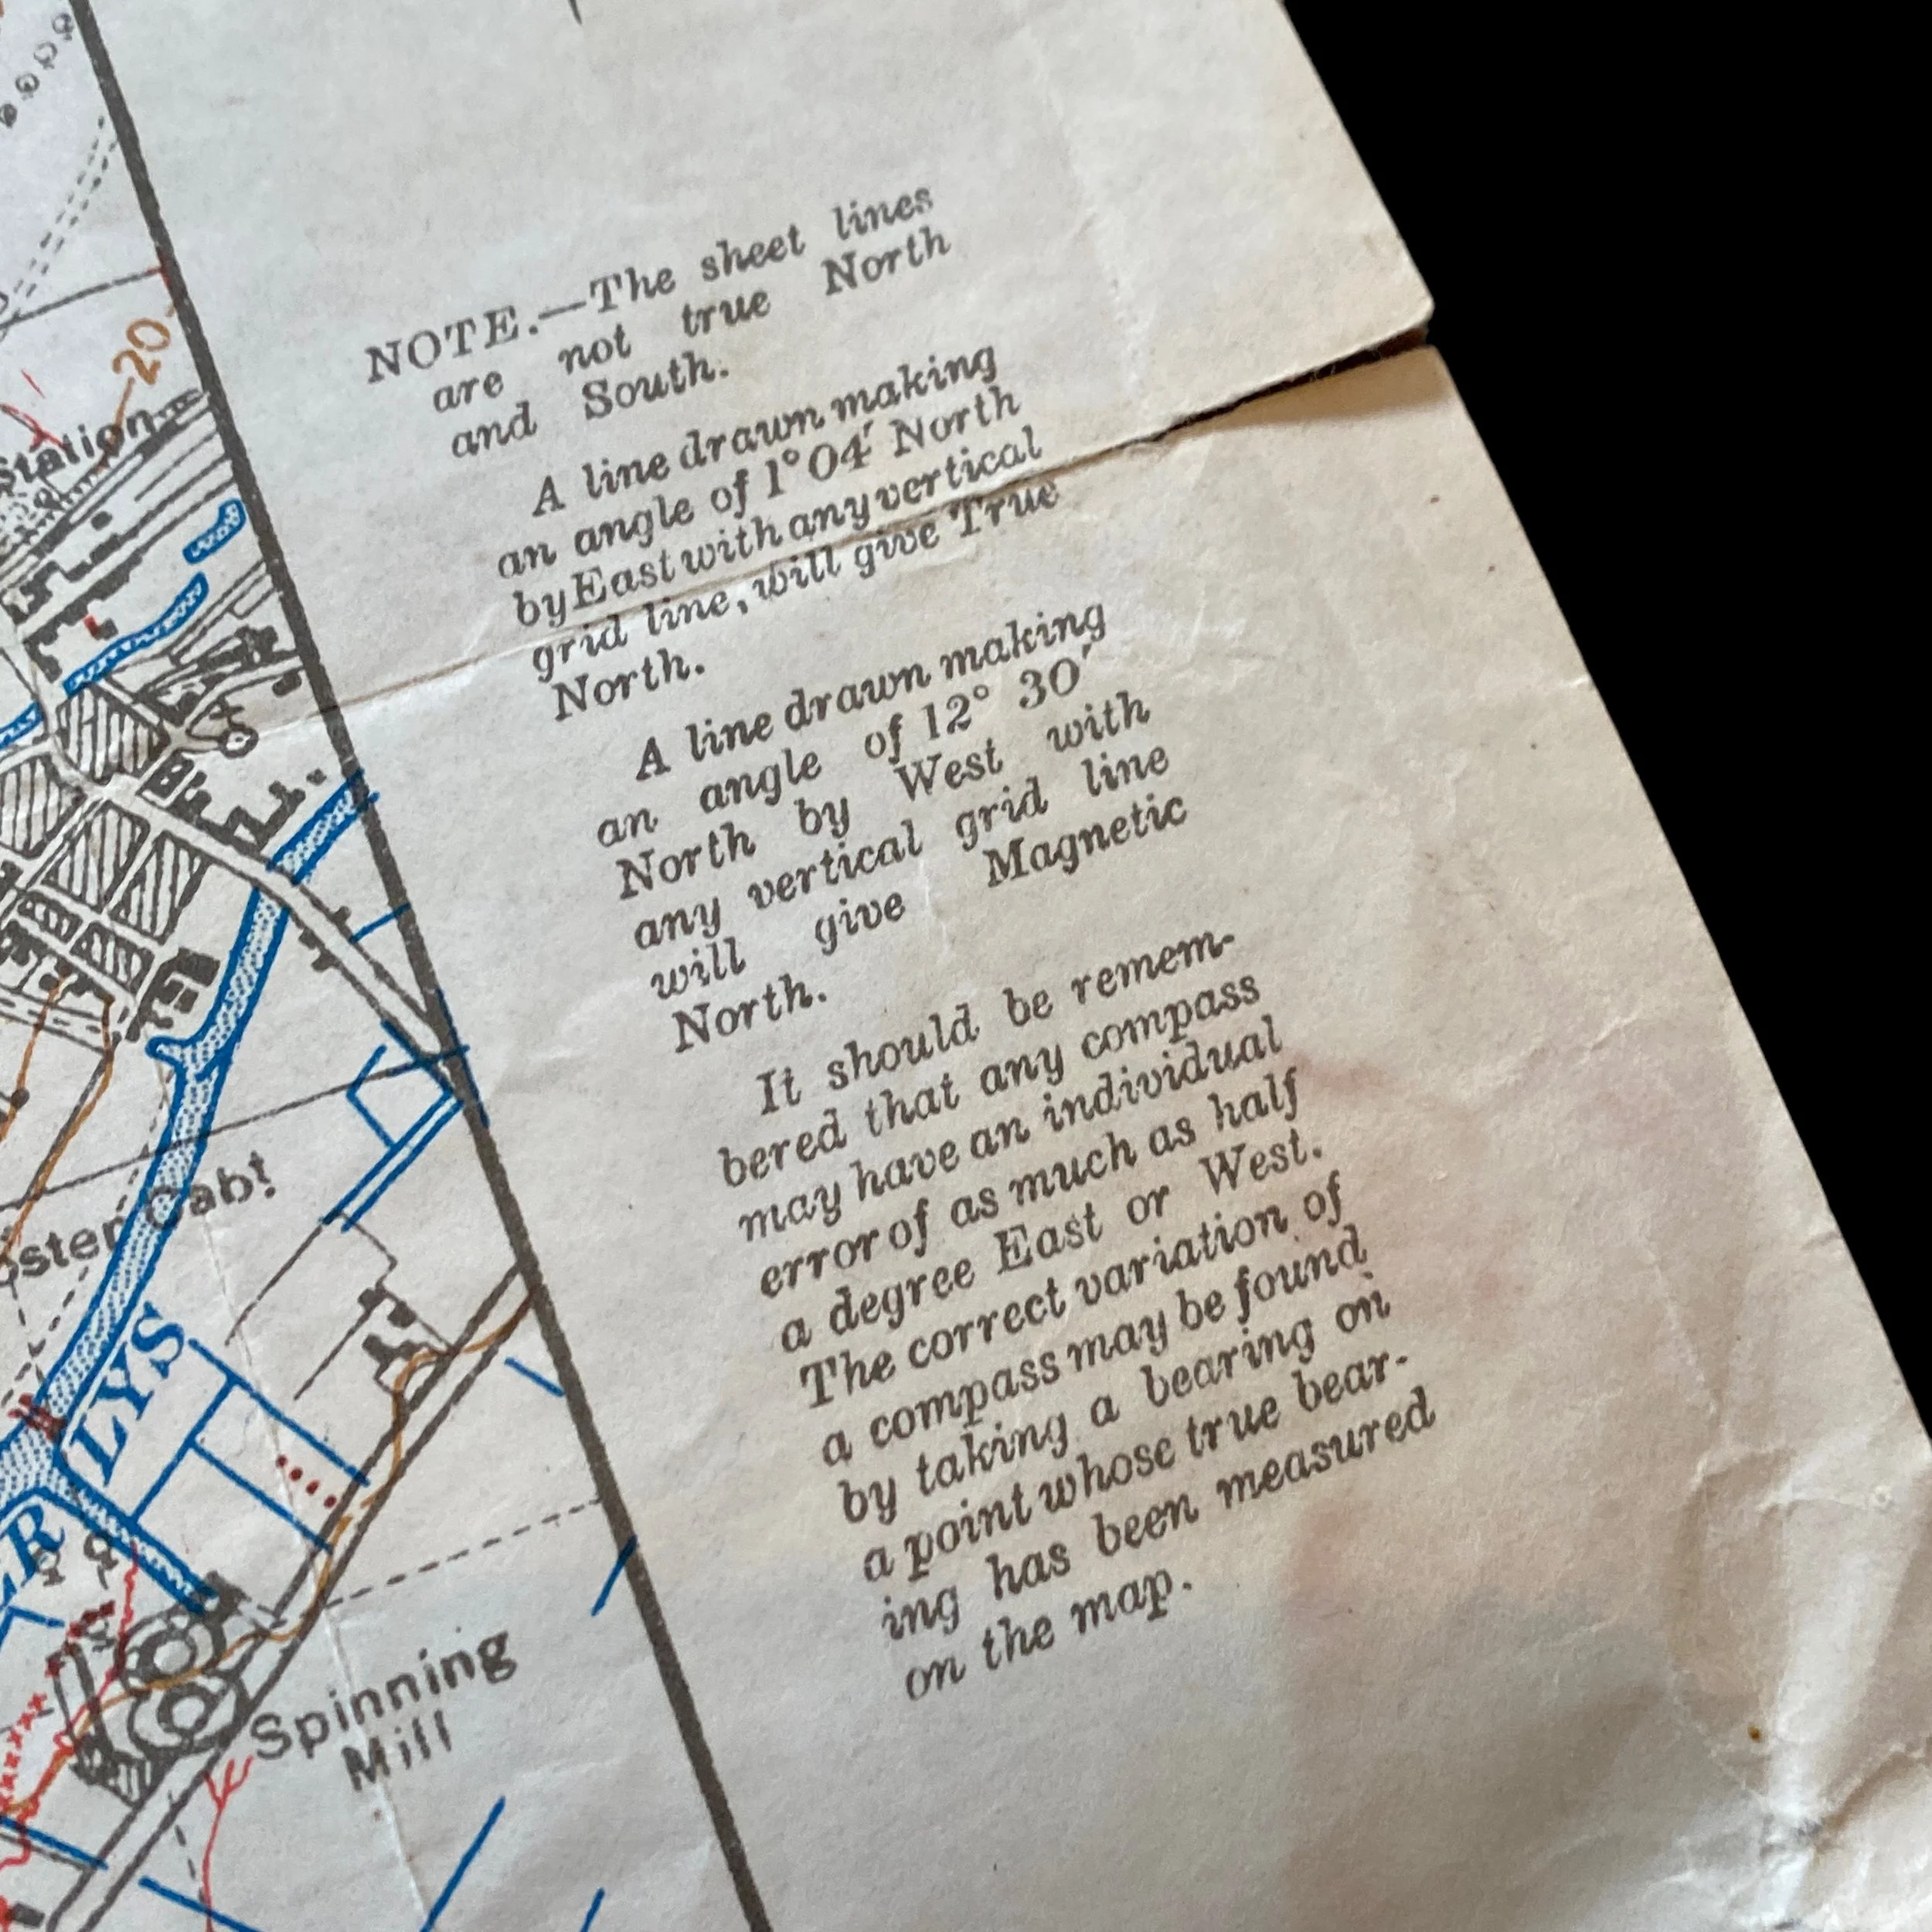 NOTE.—The sheet lines
are not true North
and South.
A line drawn making
an angle of 1° 04′ North
by East with any vertical
grid line, will give True
North.
A line drawn making
an angle of 12° 30′
North by West with
any vertical grid line
will give Magnetic
North.
It should be remem-
bered that any compass
may have an individual
error of as much as half
a degree East or West.
The correct variation of
a compass may be found
by taking a bearing on
a point whose true bear-
ing has been measured
on the map.
20
Station
Cabt
LYS
Spinning
Mill